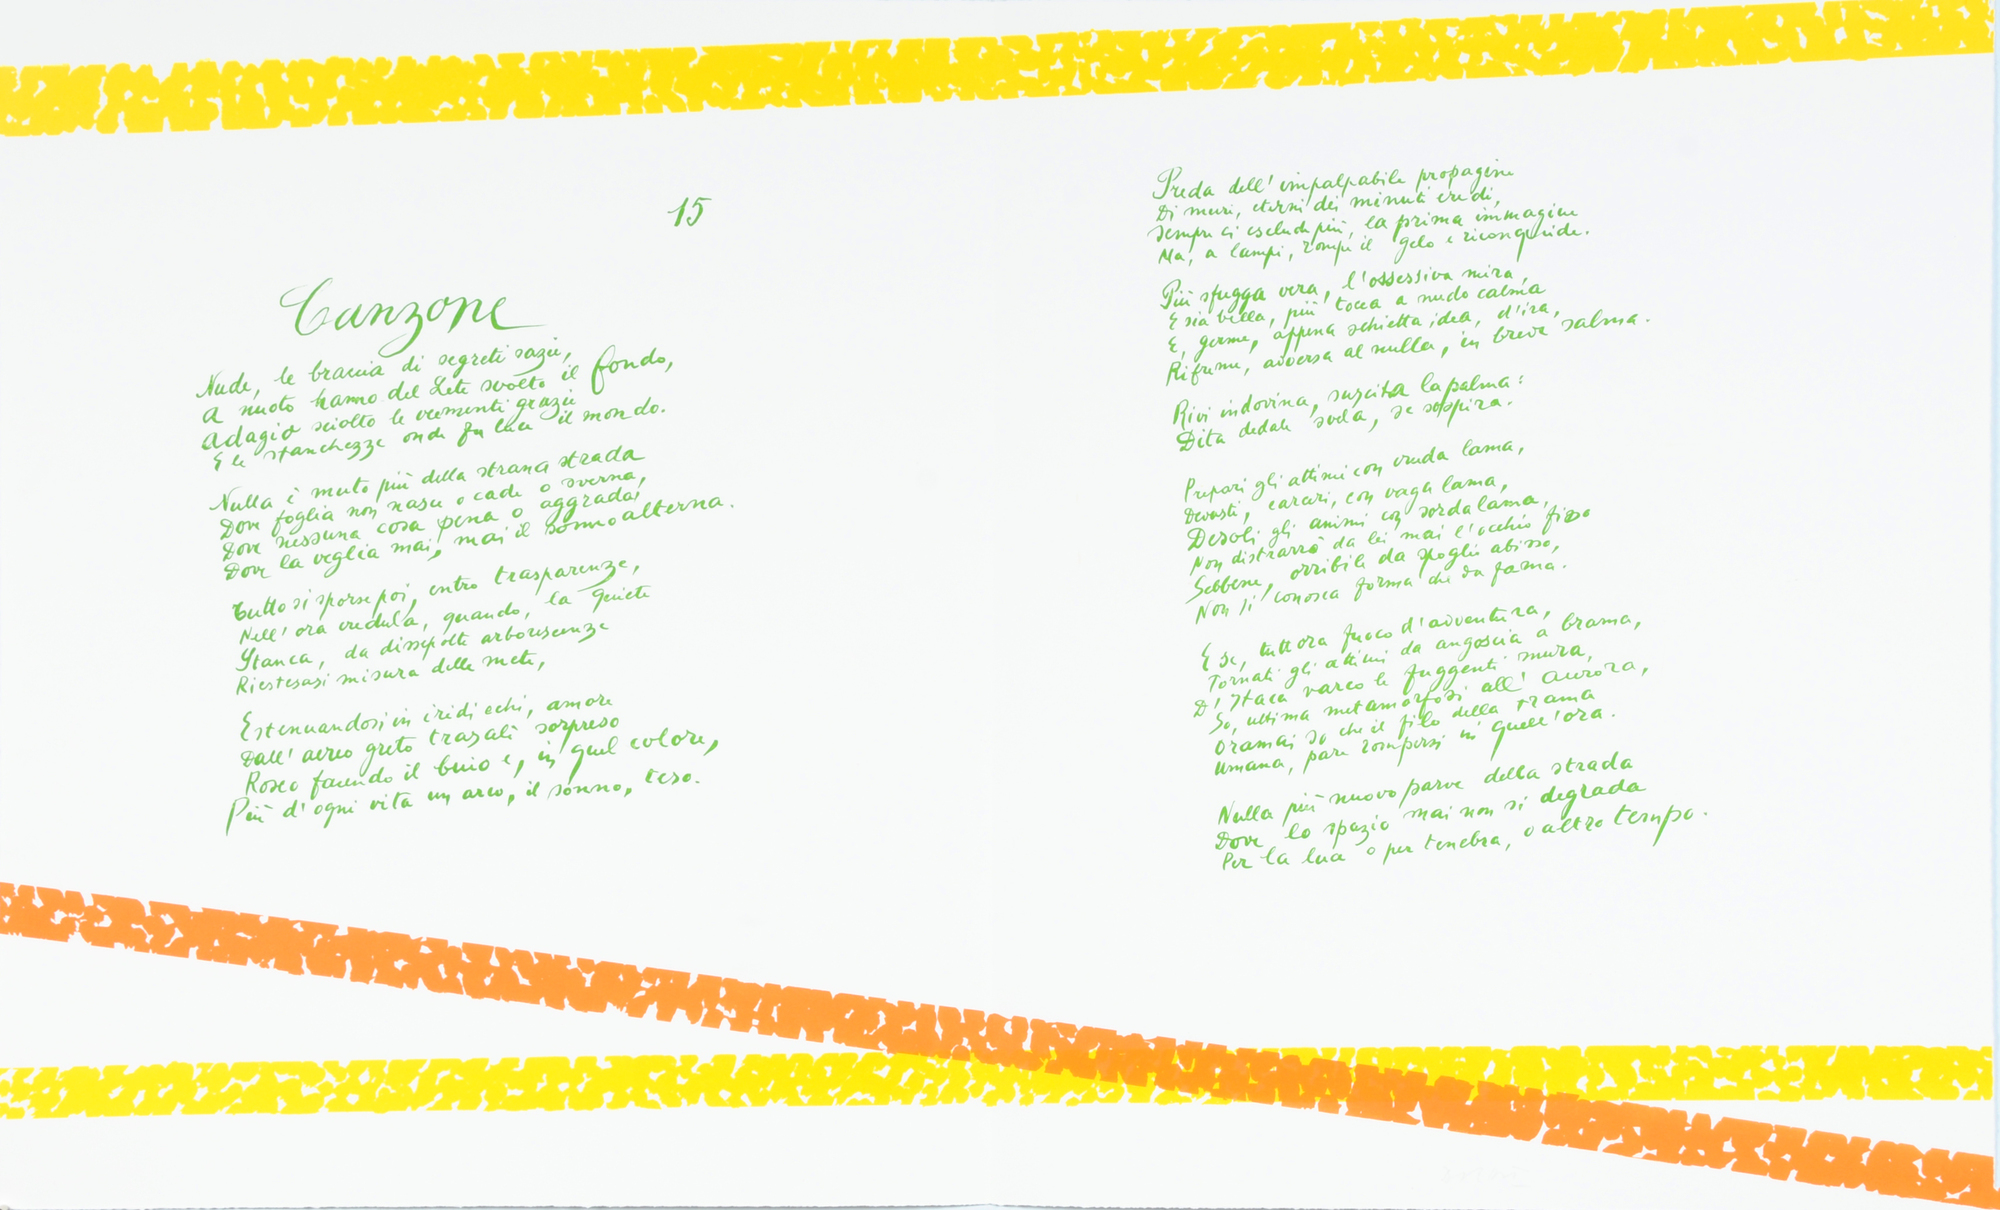 15
Canzone
Nude, le braccia di segreti sazie,
A nuoto hanno del Lete svolto il fondo,
Adagio sciolto le veementi grazie
E le stanchezze onde fu luce il mondo.
Nulla è muto più della strana strada
Dove foglia non nasce o cade o sverna,
Dove nessuna cosa pena o aggrada,
Dove la veglia mai, mai il sonno alterna.
Tutto si sporse poi, entro trasparenze,
Nell'ora credula, quando, la quiete
Stanca, da dissepolte arborescenze
Riestesasi misura delle mete,
Estenuandosi in iridi echi, amore
Dall'aereo greto trasalì sorpreso
Roseo facendo il buio e, in quel colore,
Più d'ogni vita un arco, il sonno, teso.
Preda dell'impalpabile propagine
Di muri, eterni dei minuti eredi,
Sempre ci esclude più, la prima immagine
Ma, a lampi, rompe il gelo e riconquide.
Più sfugga vera, l'ossessiva mira,
E sia bella, più tocca a nudo calma
E, germe, appena schietta idea, d'ira,
Rifreme, avversa al nulla, in breve salma.
Rivi indovina, suscita la palma:
Dita dedale svela, se sospira.
Prepari gli attimi con cruda lama,
Devasti, carceri, con vaga lama,
Desoli gli animi con sorda lama,
Non distrarrò da lei mai l'occhio fisso
Sebbene, orribile da spoglio abisso,
Non si conosca forma che da fama.
E se, tuttora fuoco d'avventura,
Tornati gli attimi da angoscia a brama,
D'Itaca varco le fuggenti mura,
So, ultima metamorfosi all'aurora,
Oramai so che il filo della trama
Umana, pare rompersi in quell'ora.
Nulla più nuovo parve della strada
Dove lo spazio mai non si degrada
Per la luce o per tenebra, o altro tempo.